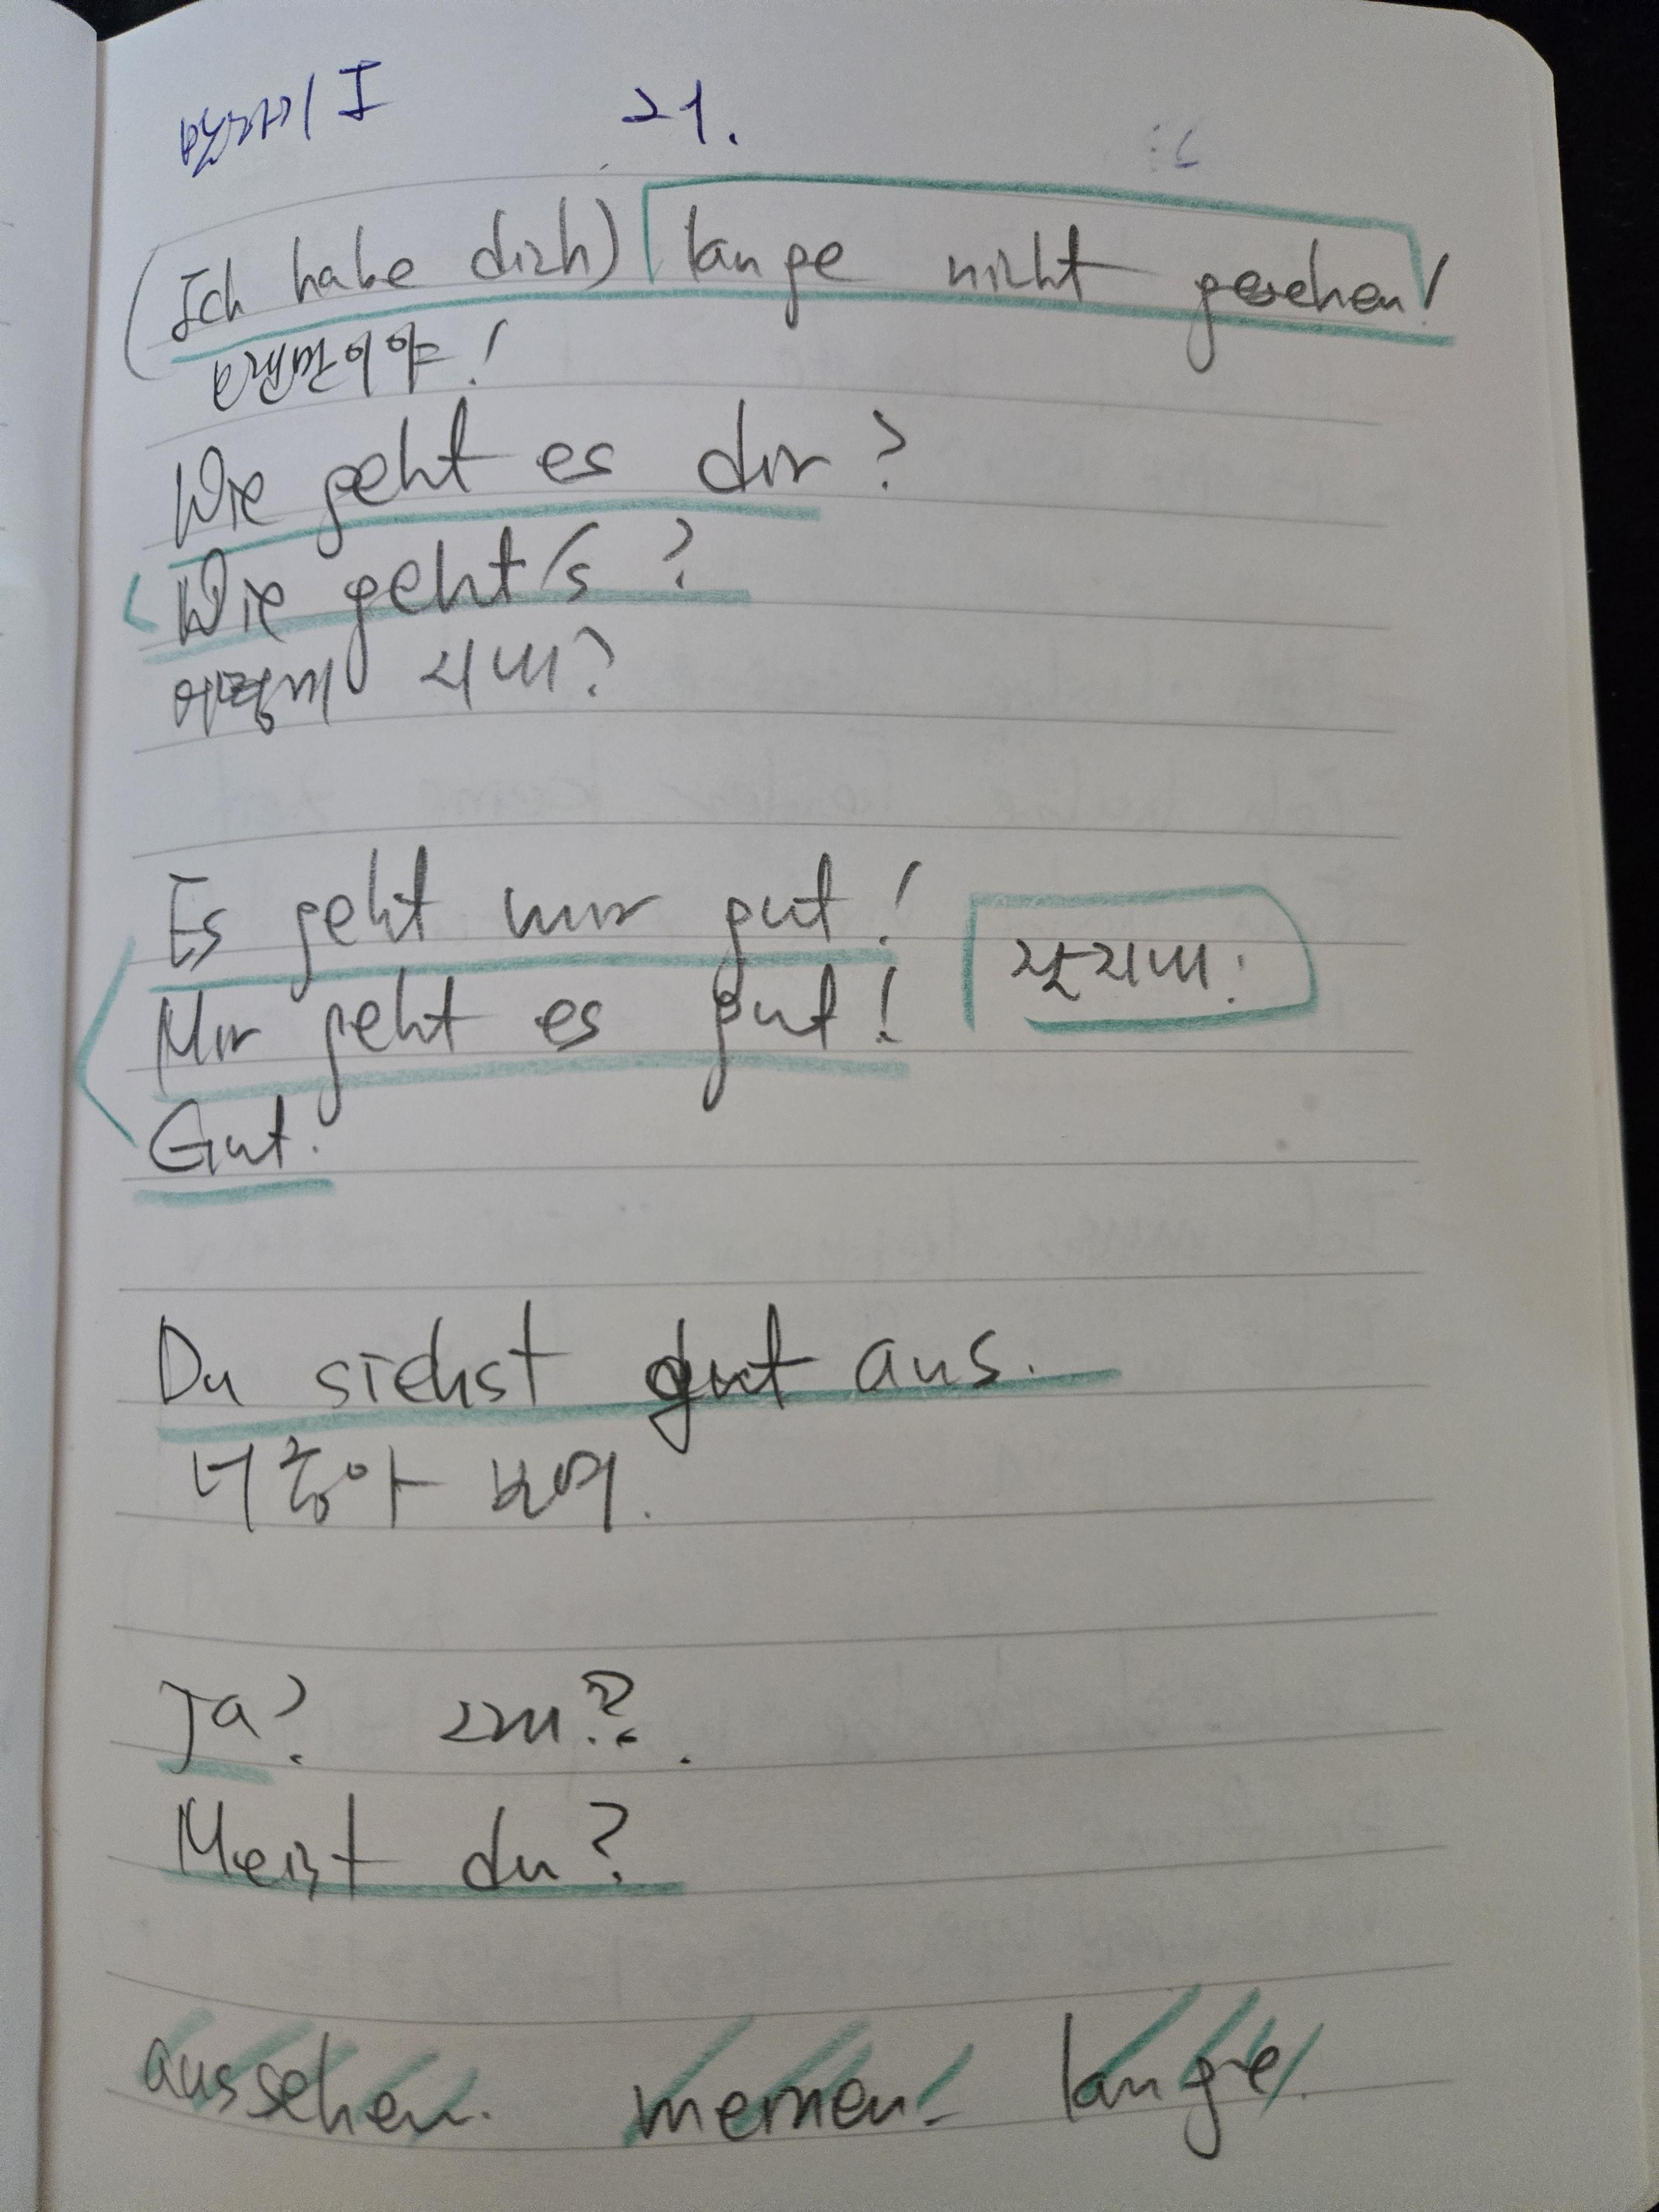 21.
(Ich habe dich) lange nicht gesehen!
오랜만이야!
Wie geht es dir?
Wie geht's?
어떻게 지내?
Es geht mir gut!
잘지내!
Mir geht es gut!
Gut.
Du siehst gut aus.
너 좋아 보여.
Ja?
Meist du?
aussehen. meinen. lange.